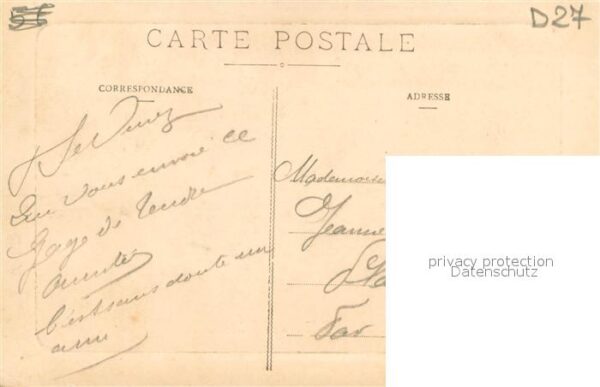 56
D27
CARTE POSTALE
CORRESPONDANCE
ADRESSE
Qui vous envoie ce
Gage de tendre
amitié
C'est sans doute un
ami
Mademoise
Jeanne
privacy protection
Datenschutz